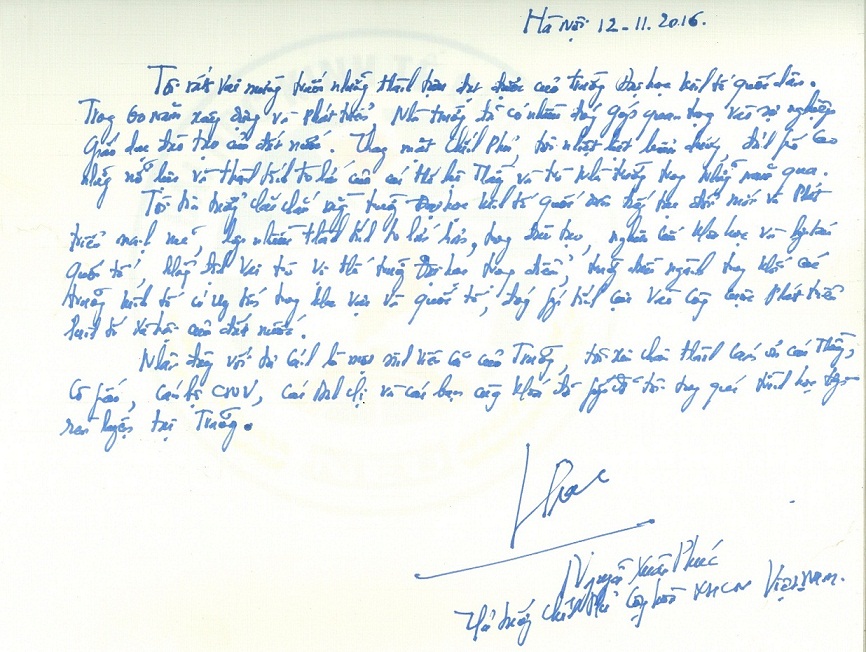 Hà Nội 12-11.2016.
Tôi rất vui mừng trước những thành tựu đạt được của Trường Đại học kinh tế quốc dân.
Trong 60 năm xây dựng và phát triển, Nhà trường đã có nhiều đóng góp quan trọng vào sự nghiệp
giáo dục đào tạo của đất nước. Thay mặt Chính Phủ tôi nhiệt liệt biểu dương, đánh giá cao
những nỗ lực và thành tích to lớn của các thế hệ Thầy và trò Nhà trường trong những năm qua.
Tôi tin tưởng chắc chắn rằng trường Đại học kinh tế quốc dân tiếp tục đổi mới và phát
triển mạnh mẽ, nhiều thành tích to lớn hơn, trong đào tạo, nghiên cứu khoa học và hợp tác
quốc tế, khẳng định vai trò vị thế trường Đại học trọng điểm, trường đầu ngành trong khối các
trường kinh tế có uy tín trong khu vực và quốc tế, đóng góp tích cực vào công cuộc phát triển
kinh tế xã hội của đất nước.
Nhân đây với tư cách là một sinh viên cũ của Trường, tôi xin chân thành cảm ơn các Thầy,
Cô giáo, cán bộ CNVV, các anh chị và các bạn cùng khoá đã giúp đỡ tôi trong quá trình học tập
rèn luyện tại Trường.
Phúc
Nguyễn Xuân Phúc
Thủ tướng Chính Phủ Cộng hoà XHCN Việt Nam.